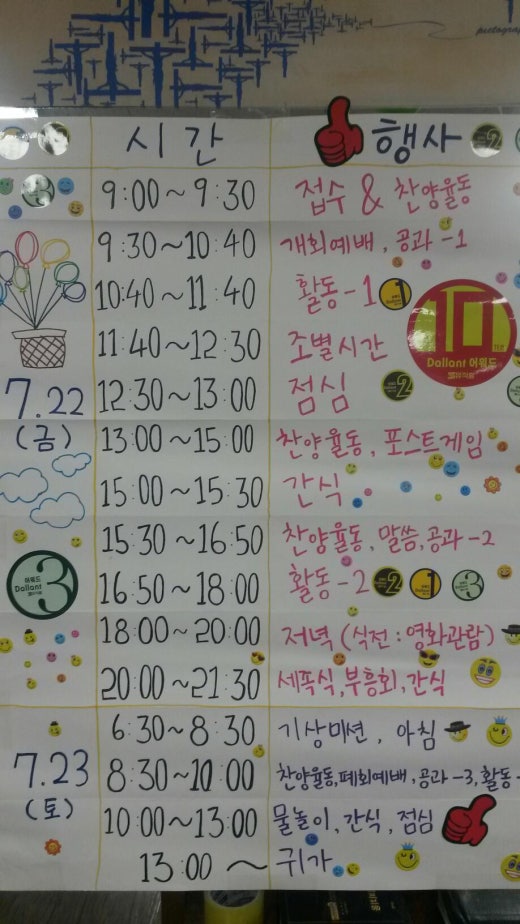 시간 행사
9:00~9:30 접수 & 찬양율동
9:30~10:40 개회예배, 공과-1
10:40~11:40 활동-1
11:40~12:30 조별시간
10
Dallant 어워드
7.22
(금)
12:30~13:00 점심
13:00~15:00 찬양율동, 포스트게임
15:00~15:30 간식
15:30~16:50 찬양율동, 말씀, 공과-2
어워드
Dallant
3
16:50~18:00 활동-2
18:00~20:00 저녁 (식전:영화관람)
20:00~21:30 세족식, 부흥회, 간식
7.23
(토)
6:30~8:30 기상미션, 아침
8:30~10:00 찬양율동, 폐회예배, 공과-3, 활동-
10:00~13:00 물놀이, 간식, 점심
13:00~ 귀가